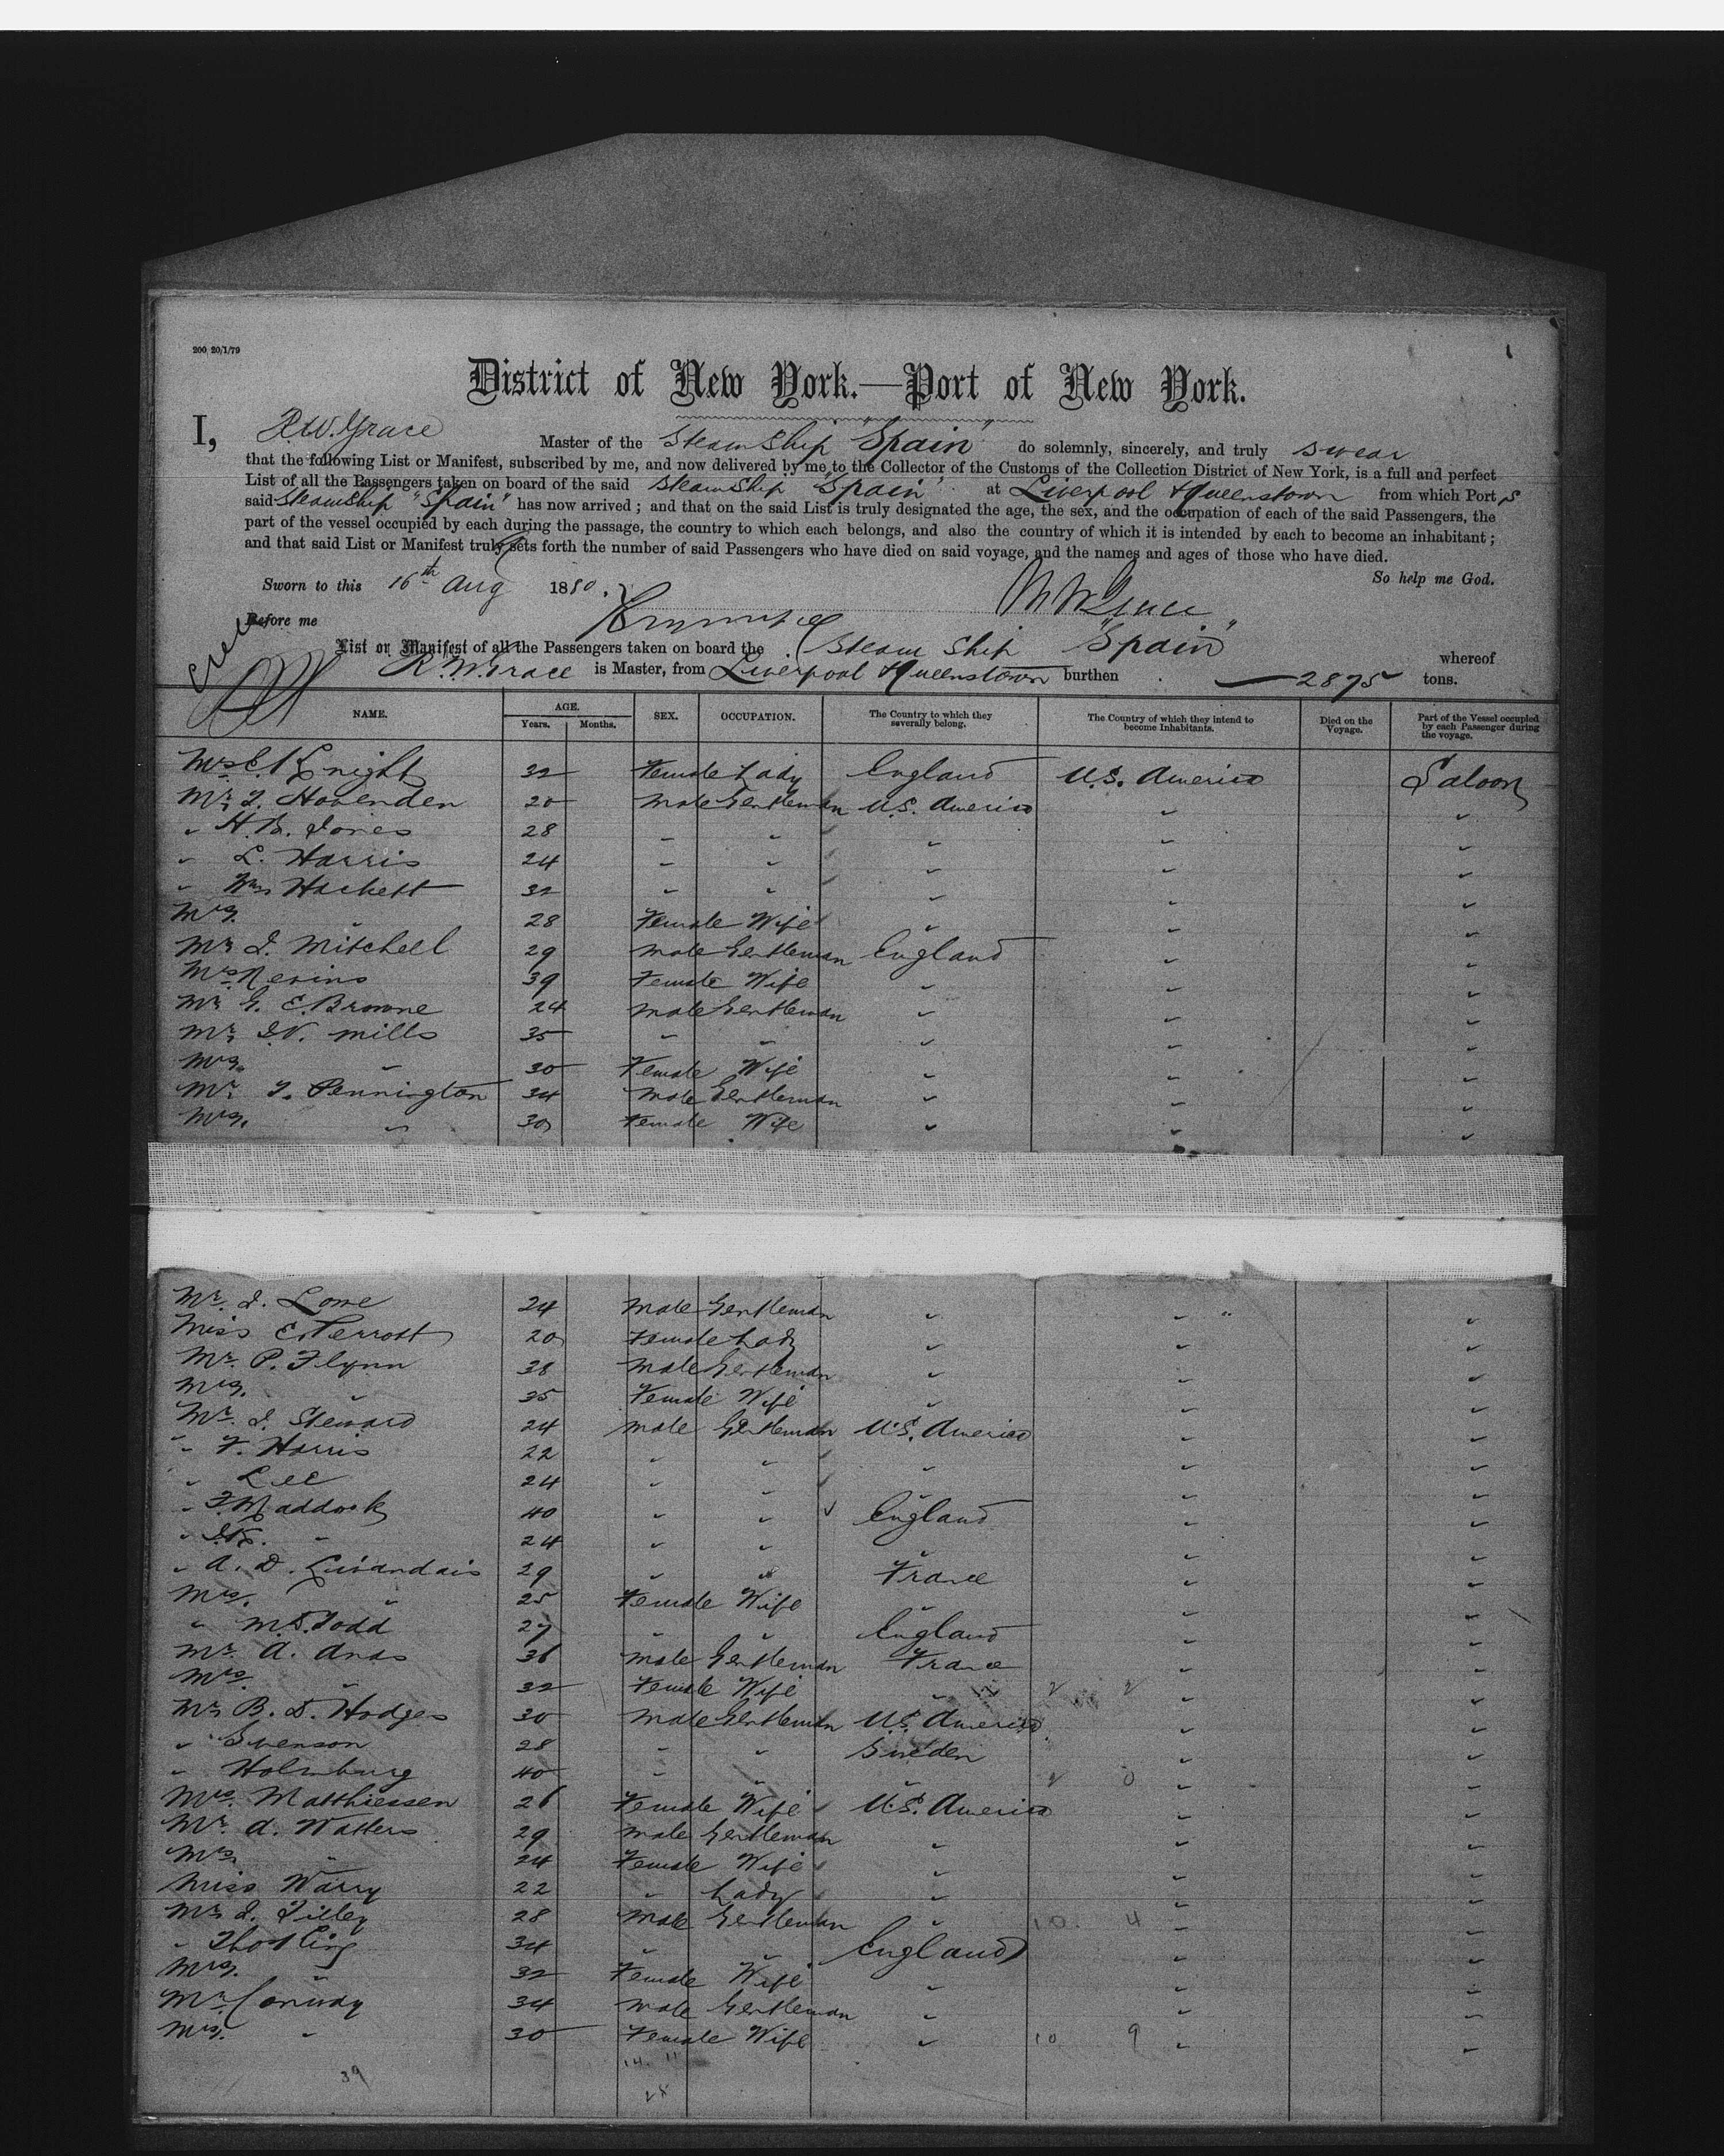 200 20/1/79
District of New York.—Port of New York.
I, R.W. Grace Master of the Steam Ship "Spain" do solemnly, sincerely, and truly swear
that the following List or Manifest, subscribed by me, and now delivered by me to the Collector of the Customs of the Collection District of New York, is a full and perfect
List of all the Passengers taken on board of the said Steam Ship "Spain" at Liverpool & Queenstown from which Port s
said Steamship "Spain" has now arrived; and that on the said List is truly designated the age, the sex, and the occupation of each of the said Passengers, the
part of the vessel occupied by each during the passage, the country to which each belongs, and also the country of which it is intended by each to become an inhabitant;
and that said List or Manifest truly sets forth the number of said Passengers who have died on said voyage, and the names and ages of those who have died.
So help me God.
Sworn to this 16th Aug 1880. R W Grace
Before me
List or Manifest of all the Passengers taken on board the Steam Ship "Spain" whereof
R. W. Grace is Master, from Liverpool & Queenstown burthen 2875 tons.
NAME. AGE. Years. Months. SEX. OCCUPATION. The Country to which they severally belong. The Country of which they intend to become Inhabitants. Died on the Voyage. Part of the Vessel occupied by each Passenger during the voyage.
Mrs E. Knight 32 Female Lady England U.S. America Saloon
Mr. T. Hovenden 20 Male Gentleman U.S. America " "
" H. B. Jones 28 " " " " "
" L. Harris 24 " " " " "
" Wm Hackett 32 " " " " "
Mrs. " 28 Female Wife " " "
Mr J. Mitchell 29 Male Gentleman England " "
Mrs Nevins 39 Female Wife " " "
Mr G. E. Browne 24 Male Gentleman " " "
Mr. J.V. Mills 35 " " " " "
Mrs. " 30 Female Wife " " "
Mr. T. Pennington 34 Male Gentleman " " "
Mrs. " 30 Female Wife " " "
Mr. J. Lowe 24 Male Gentleman " " "
Miss E. Perrott 20 Female Lady " " "
Mr. P. Flynn 38 Male Gentleman " " "
Mrs. " 35 Female Wife " " "
Mr. J. Steward 24 Male Gentleman U.S. America " "
" F. Harris 22 " " " " "
" Lee 24 " " " " "
" F. Maddock 40 " " England " "
" " 24 " " " " "
" A. D. Livandais 29 " " France " "
Mrs. " 25 Female Wife " " "
" M. D. Todd 27 " " England " "
Mr. A. Anas 36 Male Gentleman France " "
Mrs. " 32 Female Wife " " "
Mr B. D. Hodges 30 Male Gentleman U.S. America " "
" Swenson 28 " " Sweden " "
" Holmburg 40 " " " " "
Mrs. Matthiessen 26 Female Wife U.S. America " "
Mr. A. Watters 29 Male Gentleman " " "
Mrs. " 24 Female Wife " " "
Miss Warry 22 " Lady " " "
Mr J. Tilley 28 Male Gentleman " 10. 4 " "
" Thos King 34 " " England " "
Mrs. " 32 Female Wife " " "
Mr. Conway 34 Male Gentleman " " "
Mrs. " 30 Female Wife " 10 9 " "
39 14. 11
28